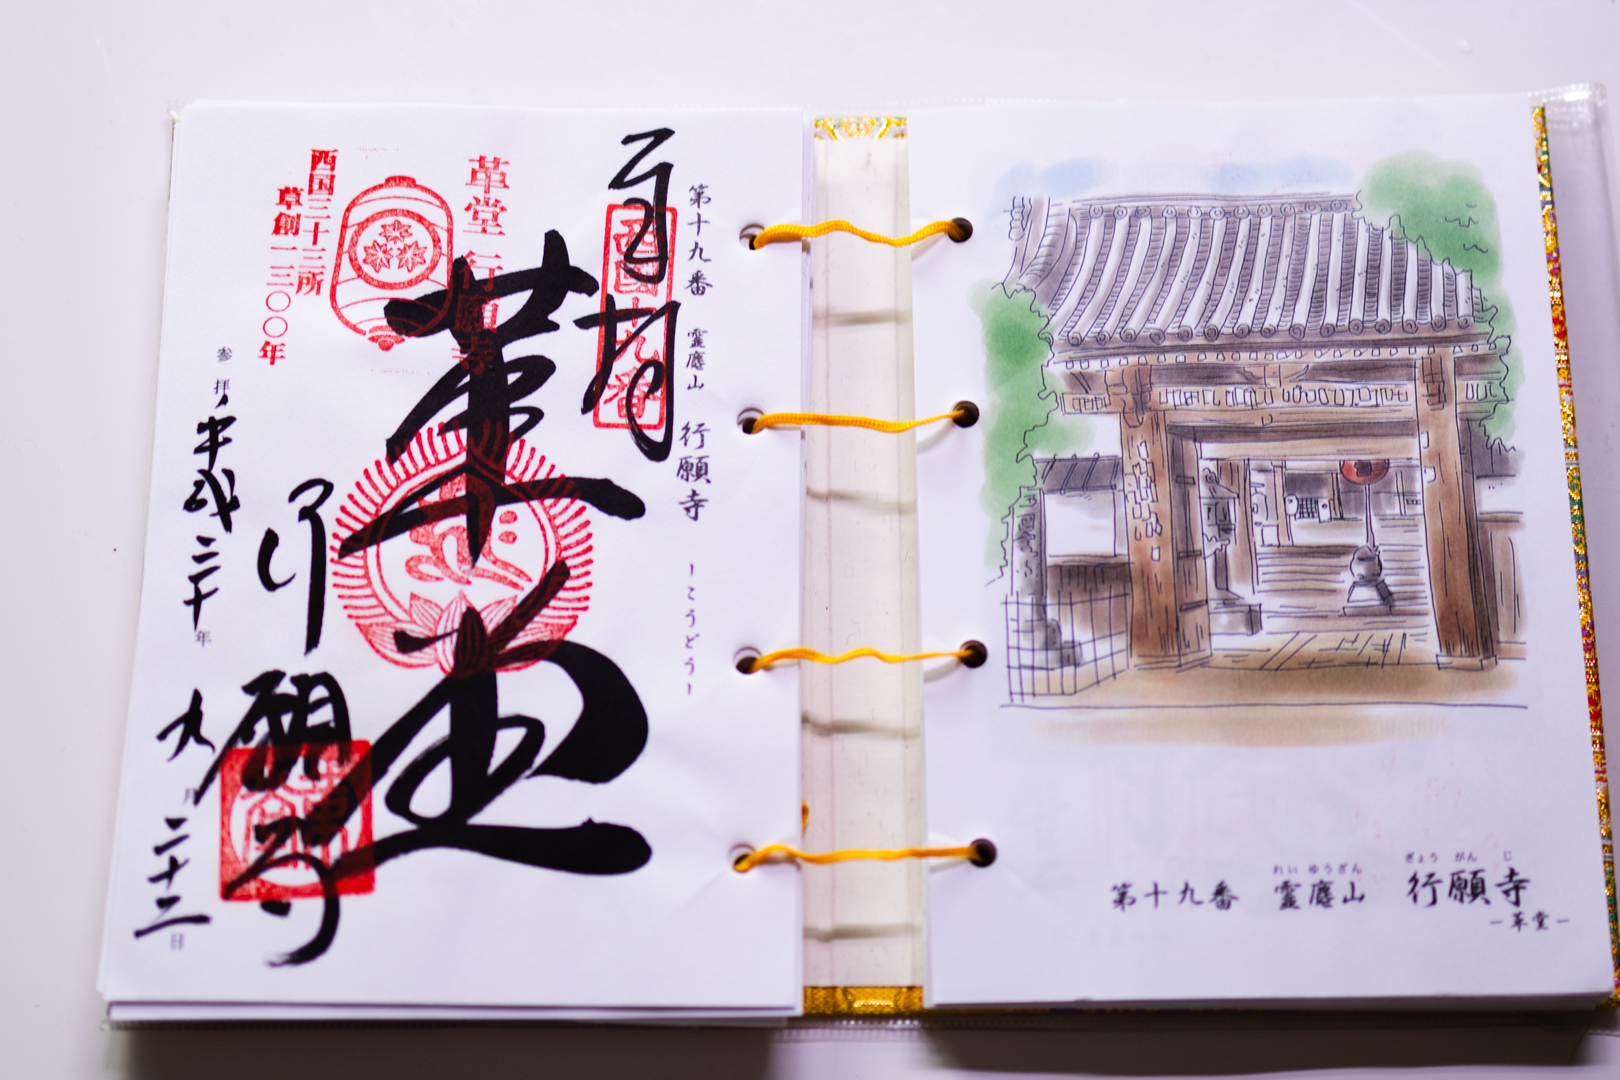 第十九番 霊麀山 行願寺 ーこうどうー
奉拝
西国十九番
革堂
革堂 行願寺
西国三十三所
草創一三〇〇年
行願寺
参拝 平成三十年 九月二十二日
れい ゆうざん ぎょう がん じ
第十九番 霊麀山 行願寺
ー革堂ー